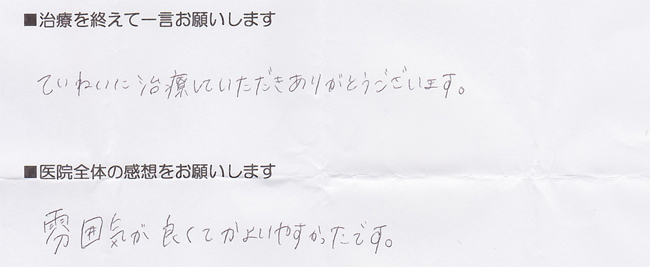 ■治療を終えて一言お願いします
ていねいに治療していただきありがとうございます。
■医院全体の感想をお願いします
雰囲気が良くてかよいやすかったです。